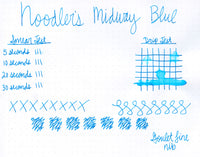 Noodler's Midway Blue
Smear Test
Drip Test
5 seconds
10 seconds
20 seconds
30 seconds
XXXXXXXXX
Goulet fine
nib